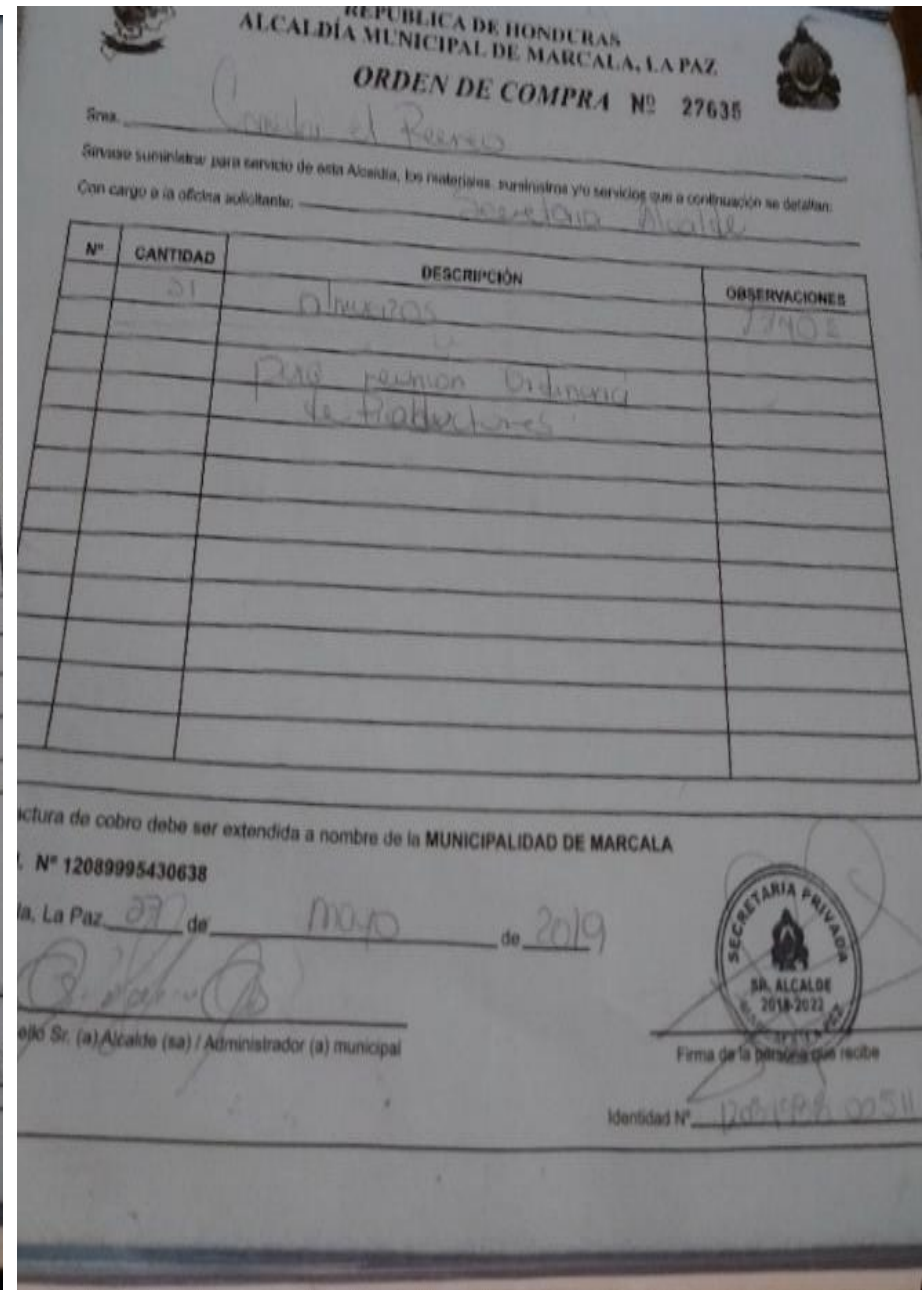 REPUBLICA DE HONDURAS
ALCALDÍA MUNICIPAL DE MARCALA, LA PAZ
ORDEN DE COMPRA Nº 27635
Sres. el Recreo
Sírvase suministrar para servicio de esta Alcaldía, los materiales, suministros y/o servicios que a continuación se detallan:
Con cargo a la oficina solicitante: Alcalde
Nº CANTIDAD DESCRIPCIÓN OBSERVACIONES
almuerzos
para reunion Ordinaria
de Productores
ctura de cobro debe ser extendida a nombre de la MUNICIPALIDAD DE MARCALA
. Nº 12089995430638
la, La Paz, 27 de mayo de 2019
SECRETARIA PRIVADA
SR. ALCALDE
2018-2022
Sr. (a) Alcalde (sa) / Administrador (a) municipal
Firma de la persona que recibe
Identidad Nº